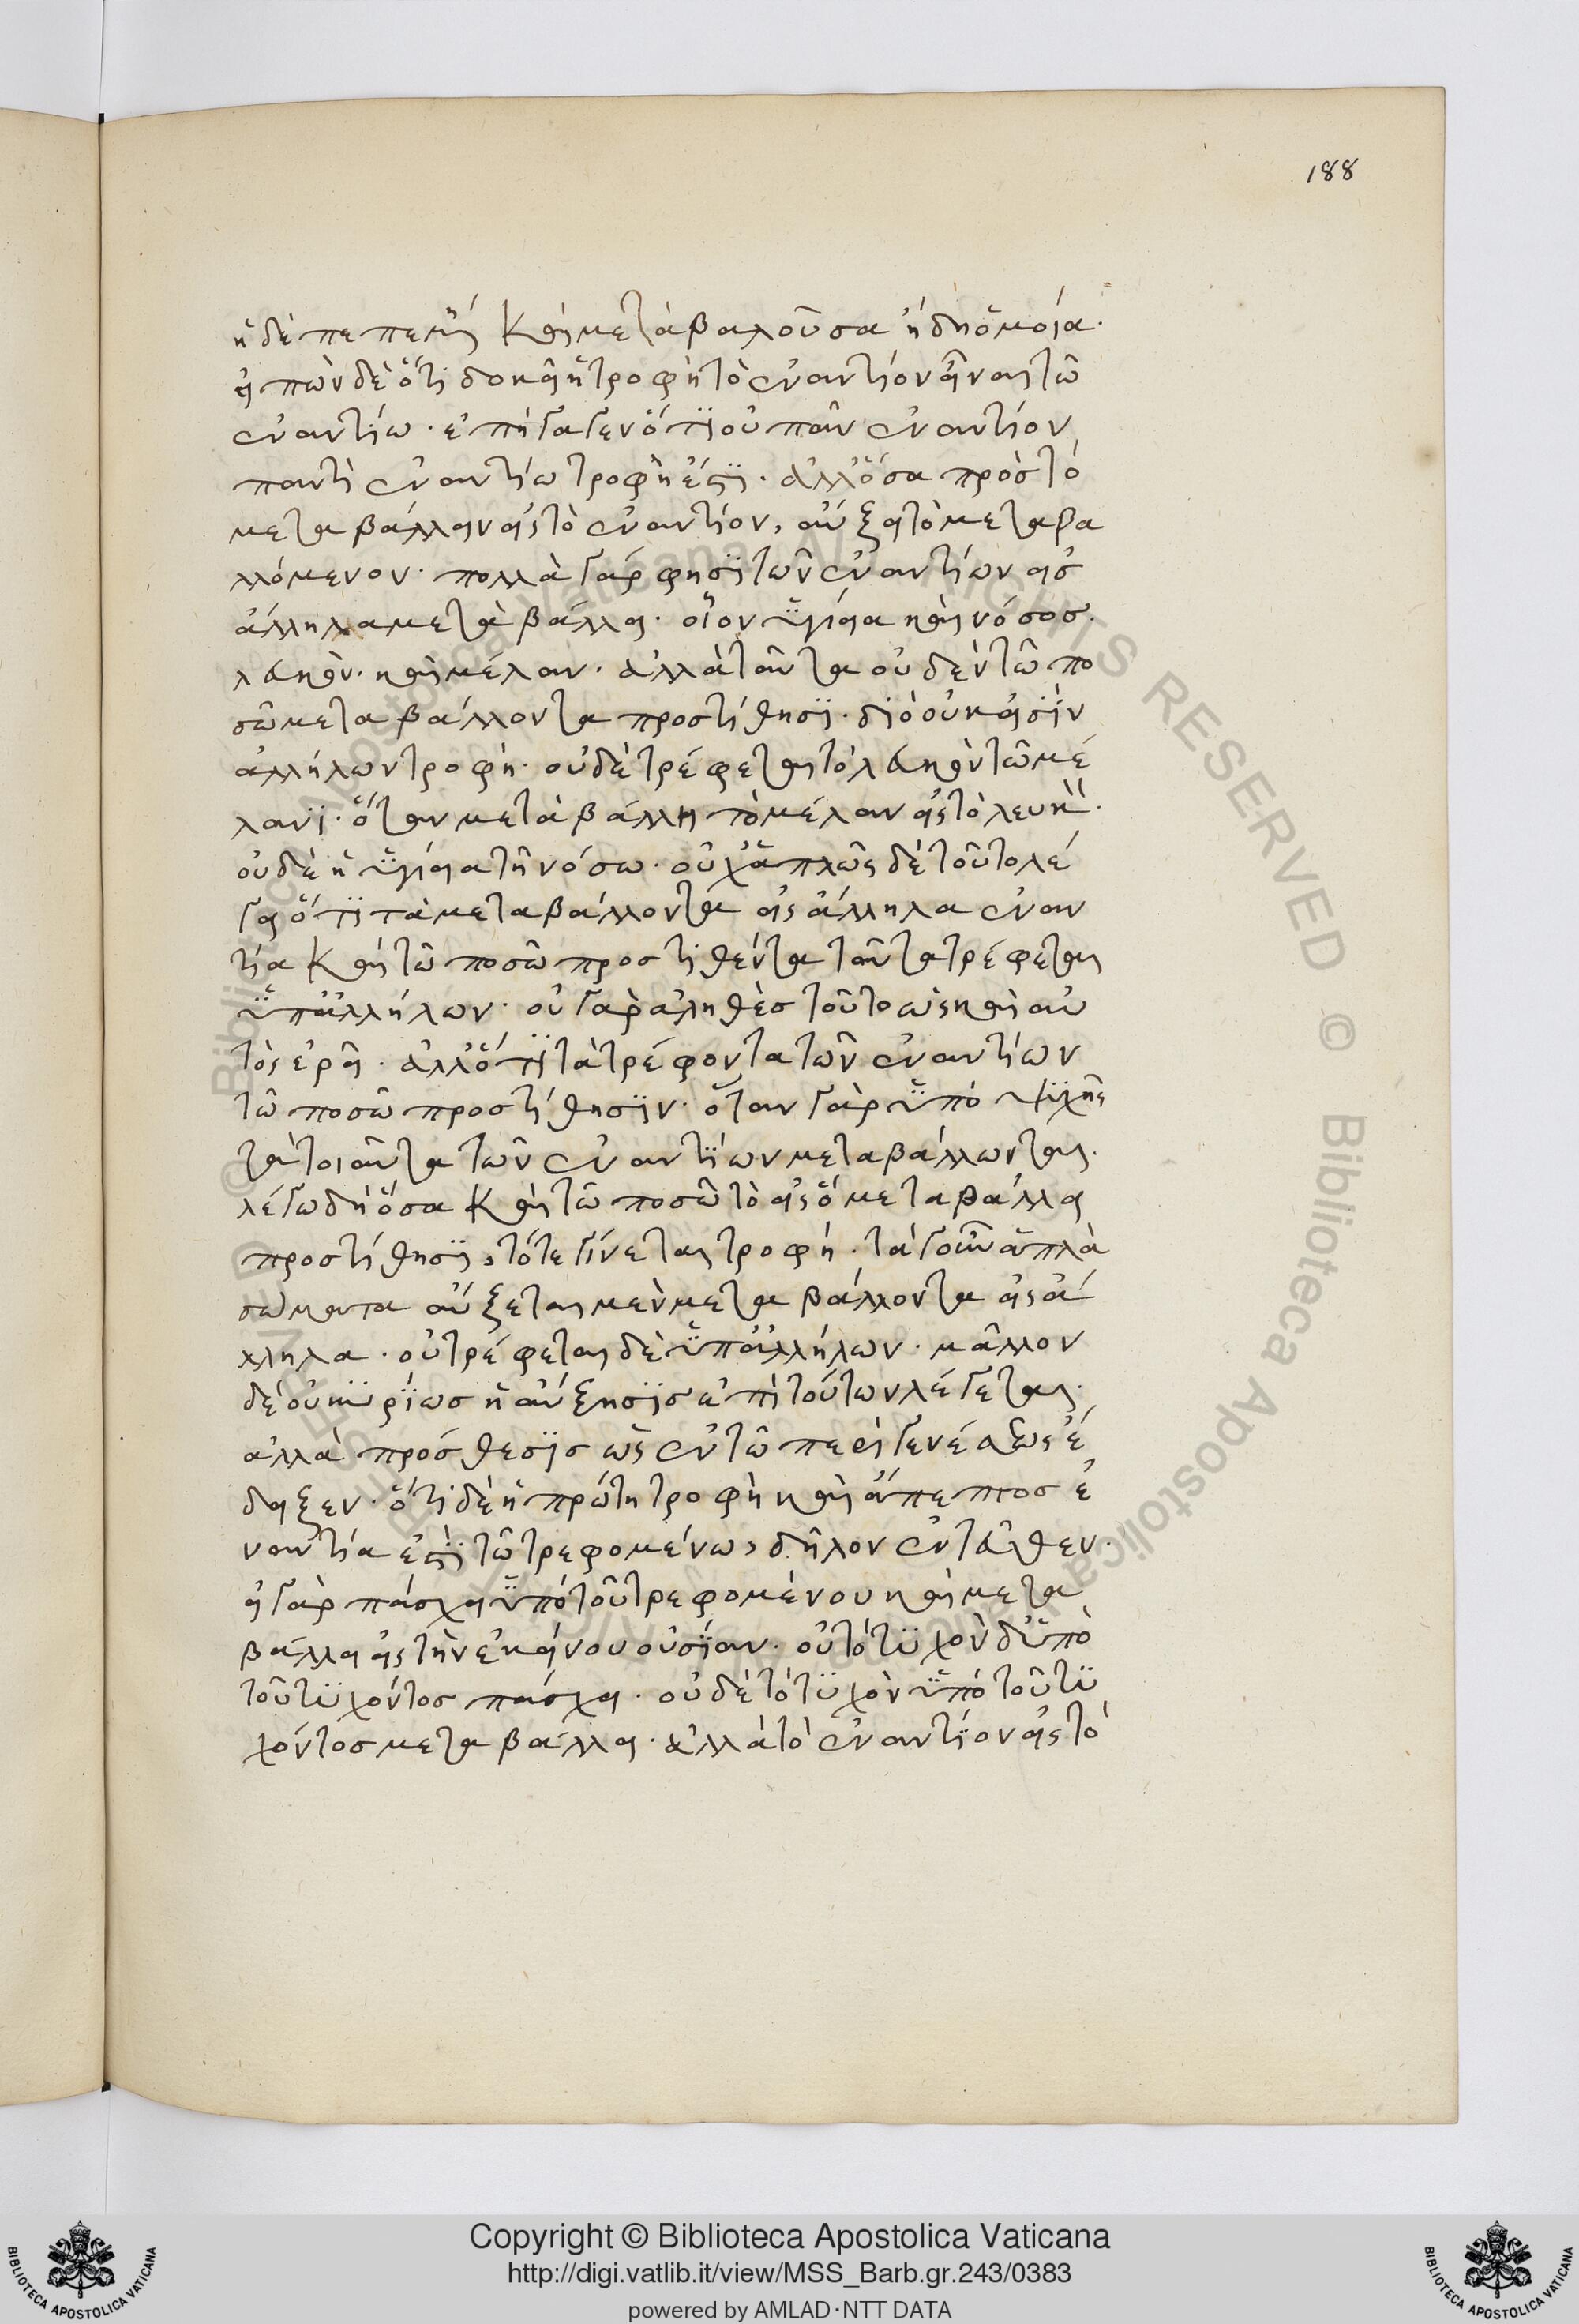 188
ἡ δὲ πεπεμμένη καὶ μεταβαλοῦσα ἤδη ὁμοία·
εἰπὼν δὲ ὅτι δοκεῖ ἡ τροφὴ τὸ ἐναντίον εἶναι τῶ
ἐναντίω· ἐπήγαγεν ὅτι οὐ πᾶν ἐναντίον
παντὶ ἐναντίω τροφὴ ἐστὶ· ἀλλ' ὅσα πρὸς τὸ
μεταβάλλειν εἰς τὸ ἐναντίον, αὔξει τὸ μεταβα
λλόμενον· πολλὰ γάρ φησι τῶν ἐναντίων εἰς
ἄλληλα μεταβάλλει· οἷον ὑγίεια καὶ νόσος·
λευκὸν· καὶ μέλαν· ἀλλὰ ταῦτα οὐδὲν τῶ πο
σῶ μεταβάλλοντα προστίθησι· διὸ οὐκ εἰσὶν
ἀλλήλων τροφὴ· οὐδὲ τρέφεται τὸ λευκὸν τῶ μέ
λανι· ὅταν μεταβάλλη τὸ μέλαν εἰς τὸ λευκὸν·
οὐδὲ ἡ ὑγίεια τῆ νόσω· οὐχ ἁπλῶς δὲ τοῦτο λέ
γει ὅτι τὰ μεταβάλλοντα εἰς ἄλληλα ἐναν
τία καὶ τῶ ποσῶ προστιθέντα ταῦτα τρέφεται
ὑπ' ἀλλήλων· οὐ γὰρ ἀληθὲς τοῦτο ὡς καὶ αὐ
τὸς ἐρεῖ· ἀλλ' ὅτι τὰ τρέφοντα τῶν ἐναντίων
τῶ ποσῶ προστίθησιν· ὅταν γὰρ ὑπὸ ψυχῆς
τὰ τοιαῦτα τῶν ἐναντίων μεταβάλλωνται·
λέγω δὴ ὅσα καὶ τῶ ποσῶ τὸ εἰς ὃ μεταβάλλει
προστίθησι, τότε γίνεται τροφή· τὰ γοῦν ἁπλᾶ
σώματα αὔξεται μὲν μεταβάλλοντα εἰς ἄ
λληλα· οὐ τρέφεται δὲ ὑπ' ἀλλήλων· μᾶλλον
δὲ οὐ κυρίως ἡ αὔξησις ἐπὶ τούτων λέγεται·
ἀλλὰ πρόσθεσις ὡς ἐν τῶ περὶ γενέσεως ἔ
δειξεν· ὅτι δὲ ἡ πρώτη τροφὴ καὶ ἄπεπτος ἐ
ναντία ἐστὶ τῶ τρεφομένω, δῆλον ἐντεῦθεν·
εἰ γὰρ πάσχει ὑπὸ τοῦ τρεφομένου καὶ μετα
βάλλει εἰς τὴν ἐκείνου οὐσίαν· οὐ τὸ τυχὸν δ' ὑπὸ
τοῦ τυχόντος πάσχει· οὐδὲ τὸ τυχὸν ὑπὸ τοῦ τυ
χόντος μεταβάλλει· ἀλλὰ τὸ ἐναντίον εἰς τὸ
Copyright © Biblioteca Apostolica Vaticana
http://digi.vatlib.it/view/MSS_Barb.gr.243/0383
powered by AMLAD·NTT DATA
BIBLIOTECA APOSTOLICA VATICANA
BIBLIOTECA APOSTOLICA VATICANA